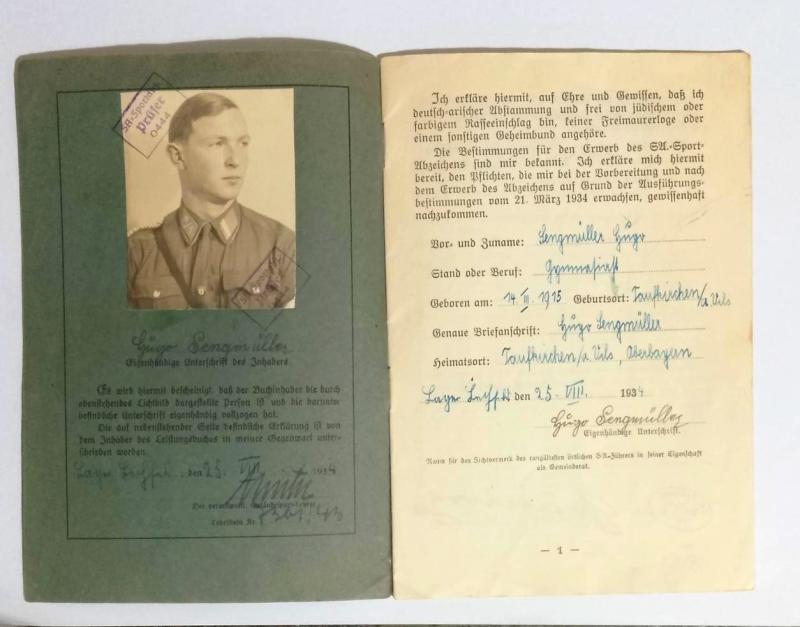 SA-Sportabz.
Prüfer
0444
Hugo Sengmüller
Eigenhändige Unterschrift des Inhabers.
Es wird hiermit bescheinigt, daß der Buchinhaber die durch
obenstehendes Lichtbild dargestellte Person ist und die darunter
befindliche Unterschrift eigenhändig vollzogen hat.
Die auf nebenstehender Seite befindliche Erklärung ist von
dem Inhaber des Leistungsbuches in meiner Gegenwart unter-
schrieben worden.
Lager Lechfeld, den 25. VIII. 1934
Der verantwortl.
Lehrschein Nr.
Ich erkläre hiermit, auf Ehre und Gewissen, daß ich
deutsch-arischer Abstammung und frei von jüdischem oder
farbigem Rasseeinschlag bin, keiner Freimaurerloge oder
einem sonstigen Geheimbund angehöre.
Die Bestimmungen für den Erwerb des SA.-Sport-
Abzeichens sind mir bekannt. Ich erkläre mich hiermit
bereit, den Pflichten, die mir bei der Vorbereitung und nach
dem Erwerb des Abzeichens auf Grund der Ausführungs-
bestimmungen vom 21. März 1934 erwachsen, gewissenhaft
nachzukommen.
Vor- und Zuname: Sengmüller Hugo
Stand oder Beruf: Gymnasiast
Geboren am: 14. III. 1915 Geburtsort: Taufkirchen/a. Vils
Genaue Briefanschrift: Hugo Sengmüller
Heimatsort: Taufkirchen/a. Vils, Oberbayern
Lager Lechfeld den 25. VIII. 1934
Hugo Sengmüller
Eigenhändige Unterschrift.
Raum für den Sichtvermerk des rangältesten örtlichen SA-Führers in seiner Eigenschaft
als Gemeinderat.
— 1 —